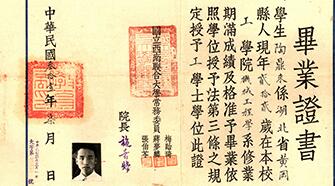 畢業證書
學生陶鼎來係湖北省黃岡
縣人現年貳拾貳歲在本校
工學院機械工程學系修業
期滿成績及格准予畢業依
照學位授予法第三條之規
定授予工學士學位此證
國立西南聯合大學常務委員
梅貽琦
蔣夢麟
張伯苓
院長施嘉煬
中華民國叁拾壹年 月 日